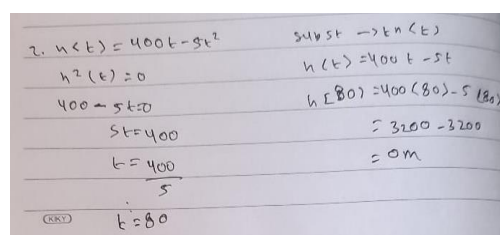 2. h(t) = 400t - 5t²
h²(t) = 0
400 - 5t=0
5t=400
t = 400
5
t = 80
subst → tn (t)
h(t) = 400 t - 5t
h[80) = 400(80) - 5(80)
= 3200 - 3200
= 0m
KKY